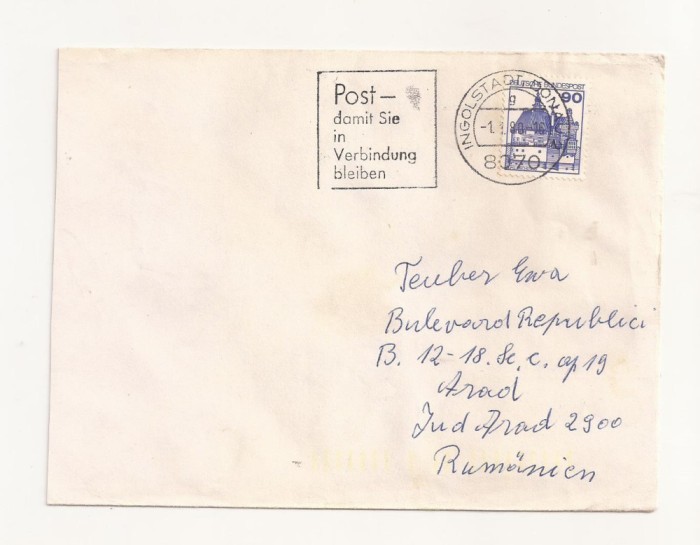 Post—
damit Sie
in
Verbindung
bleiben
INGOLSTADT, DONAU
g
8070
DEUTSCHE BUNDESPOST
90
Teuber Ewa
Bulevard Republici
B. 12-18. Sc. C. ap 19
Arad
Jud Arad 2900
Rumänien